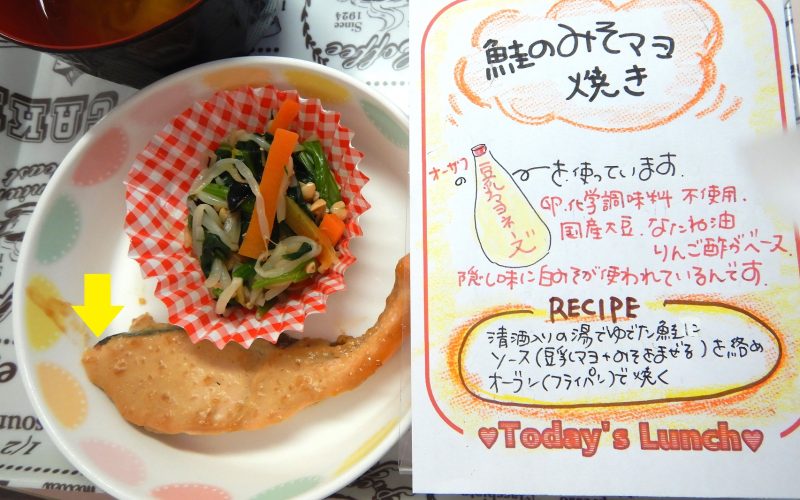 Since
1924
Coffee
CAKE
1/2
鮭のみそマヨ
焼き
オーサワの
豆乳マヨネーズ
を使っています.
卵.化学調味料 不使用.
国産大豆.なたね油
りんご酢がベース.
隠し味に白みそが使われているんです.
RECIPE
清酒入りの湯でゆでた鮭に
ソース(豆乳マヨ+みそをまぜる)を絡め
オーブン(フライパン)で焼く
♥Today's Lunch♥